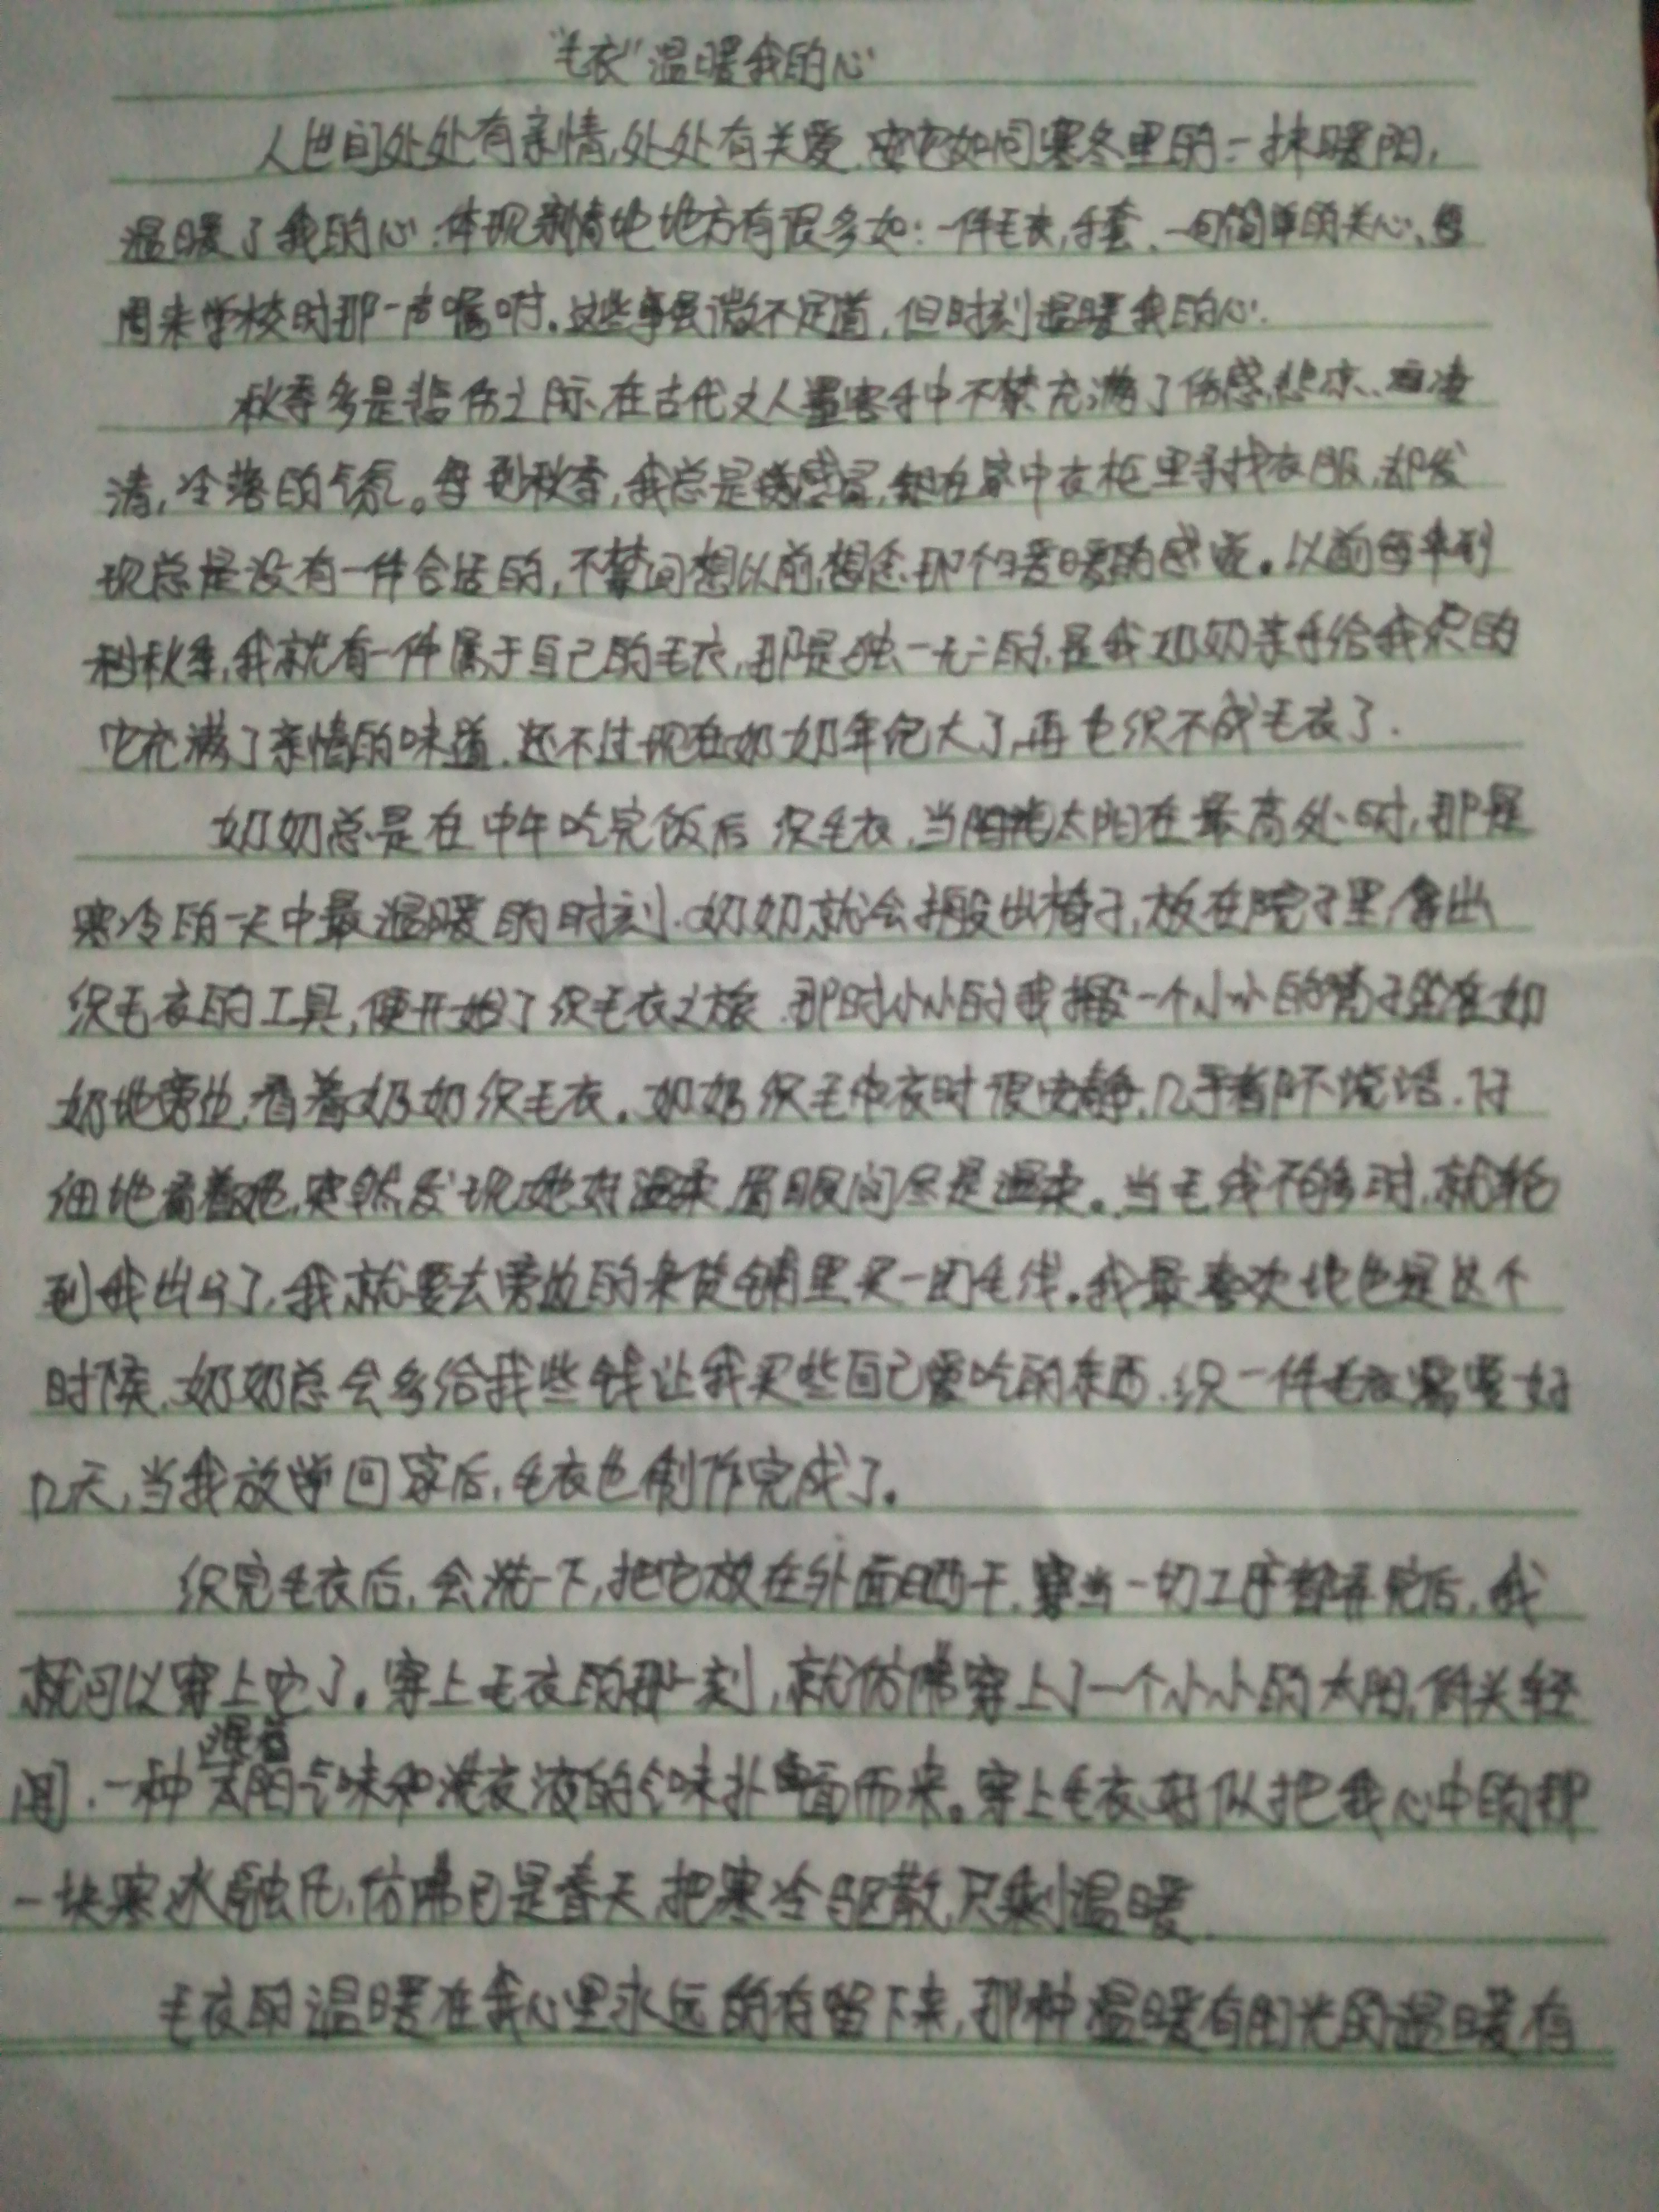 “毛衣”温暖我的心
人世间处处有亲情,处处有关爱.它如同寒冬里的一抹暖阳,
温暖了我的心.体现亲情地地方有很多如:一件毛衣,手套、一句简单的关心、每
周来学校时那一声嘱咐。这些事虽微不足道,但时刻温暖我的心.
秋季多是悲伤之际、在古代文人墨客手中不禁充满了伤感、悲凉、凄
清,冷落的气氛。每到秋季,我总是感冒,在家中衣柜里寻找衣服,却发
现总是没有一件合适的,不禁回想以前,想念那个暖暖的感觉。以前每年到
秋季,我就有一件属于自己的毛衣,那是独一无二的,是我奶奶亲手给我织的
它充满了亲情的味道.不过现在奶奶年纪大了,再也织不成毛衣了.
奶奶总是在中午吃完饭后织毛衣.当太阳在最高处时,那是
寒冷的一天中最温暖的时刻.奶奶就会搬出椅子,放在院子里,拿出
织毛衣的工具,便开始了织毛衣之旅.那时小小的我搬一个小小的凳子坐在奶
奶地旁边,看着奶奶织毛衣。奶奶织毛衣时很安静,几乎都不说话.仔
细地看着她,突然发现她好温柔,眉眼间尽是温柔。当毛线不够时,就轮
到我出马了,我就要去旁边的杂货铺里买一团毛线。我最喜欢地也是这个
时候,奶奶总会多给我些钱让我买些自己爱吃的东西.织一件毛衣需要好
几天,当我放学回家后,毛衣也制作完成了。
织完毛衣后,会洗一下,把它放在外面晒干.当一切工序都弄完后,我
就可以穿上它了。穿上毛衣的那一刻,就仿佛穿上了一个小小的太阳,
间.一种太阳气味和洗衣液的气味扑面而来。穿上毛衣,好似把我心中的那
一块寒冰融化,仿佛已是春天,把寒冷驱散,只剩温暖.
毛衣的温暖在我心里永远的存留下来,那种温暖有阳光的温暖有